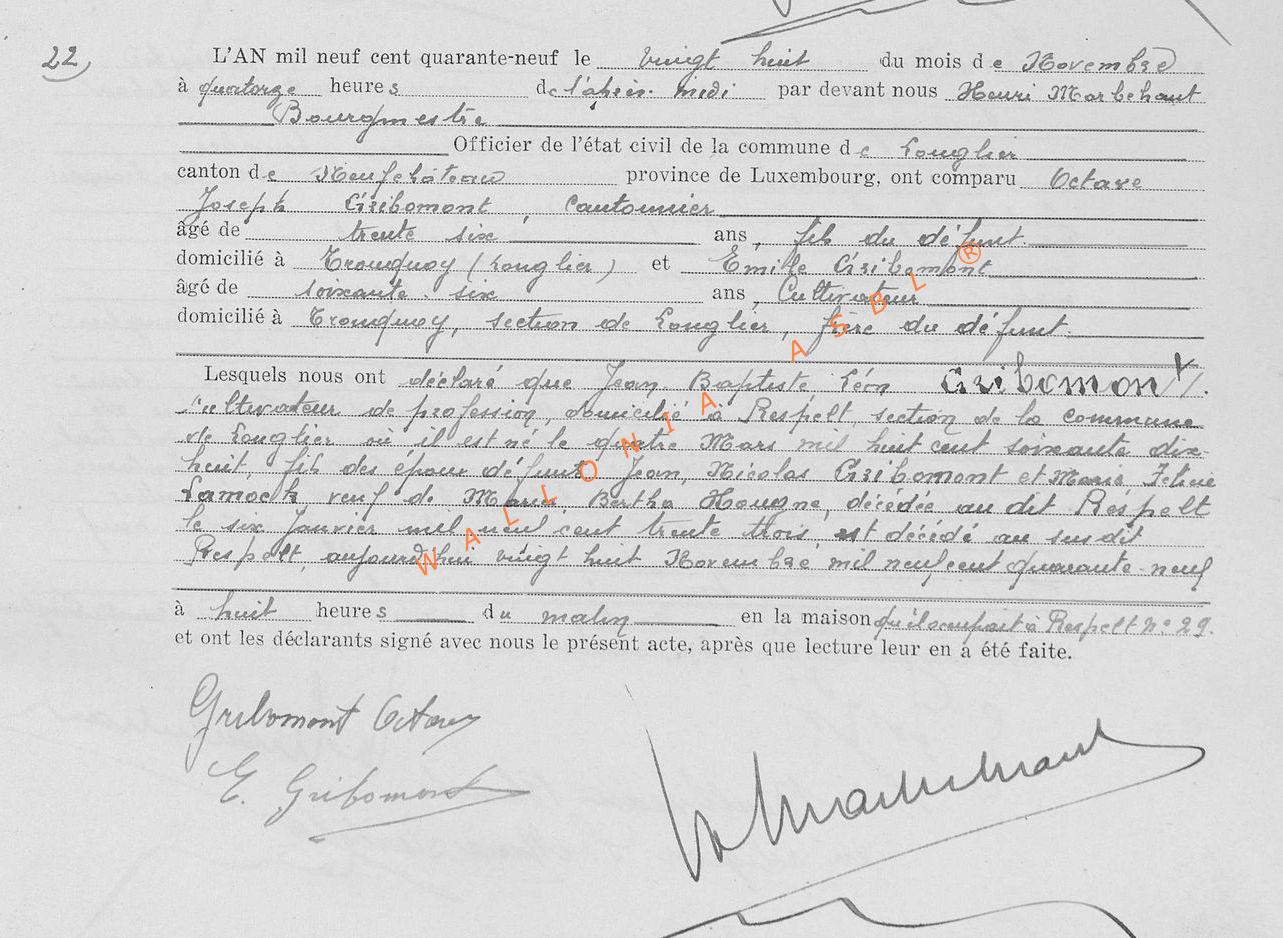 22
L'AN mil neuf cent quarante-neuf le vingt huit du mois de Novembre
à quatorze heures de l'après-midi par devant nous Henri Marbehant
Bourgmestre
Officier de l'état civil de la commune de Longlier
canton de Neufchâteau province de Luxembourg, ont comparu Octave
Joseph Gribomont, cantonnier
âgé de trente six ans, fils du défunt
domicilié à Tronquoy (Longlier) et Emile Gribomont
âgé de soixante-six ans, Cultivateur
domicilié à Tronquoy, section de Longlier, frère du défunt.
Lesquels nous ont déclaré que Jean Baptiste Léon Gribomont
cultivateur de profession, domicilié à Respelt, section de la commune
de Longlier où il est né le quatre Mars mil huit cent soixante dix-
huit, fils des époux défunts Jean, Nicolas Gribomont et Marie
Lamock veuf de Marie, Bertha, décédée au dit Respelt
le six Janvier mil neuf cent trente trois, est décédé au susdit
Respelt, aujourd'hui vingt huit Novembre mil neuf cent quarante-neuf
à huit heures du matin en la maison qu'il occupait à Respelt n° 29.
et ont les déclarants signé avec nous le présent acte, après que lecture leur en a été faite.
Gribomont Octave
E. Gribomont
WALLONIA ASBL ®